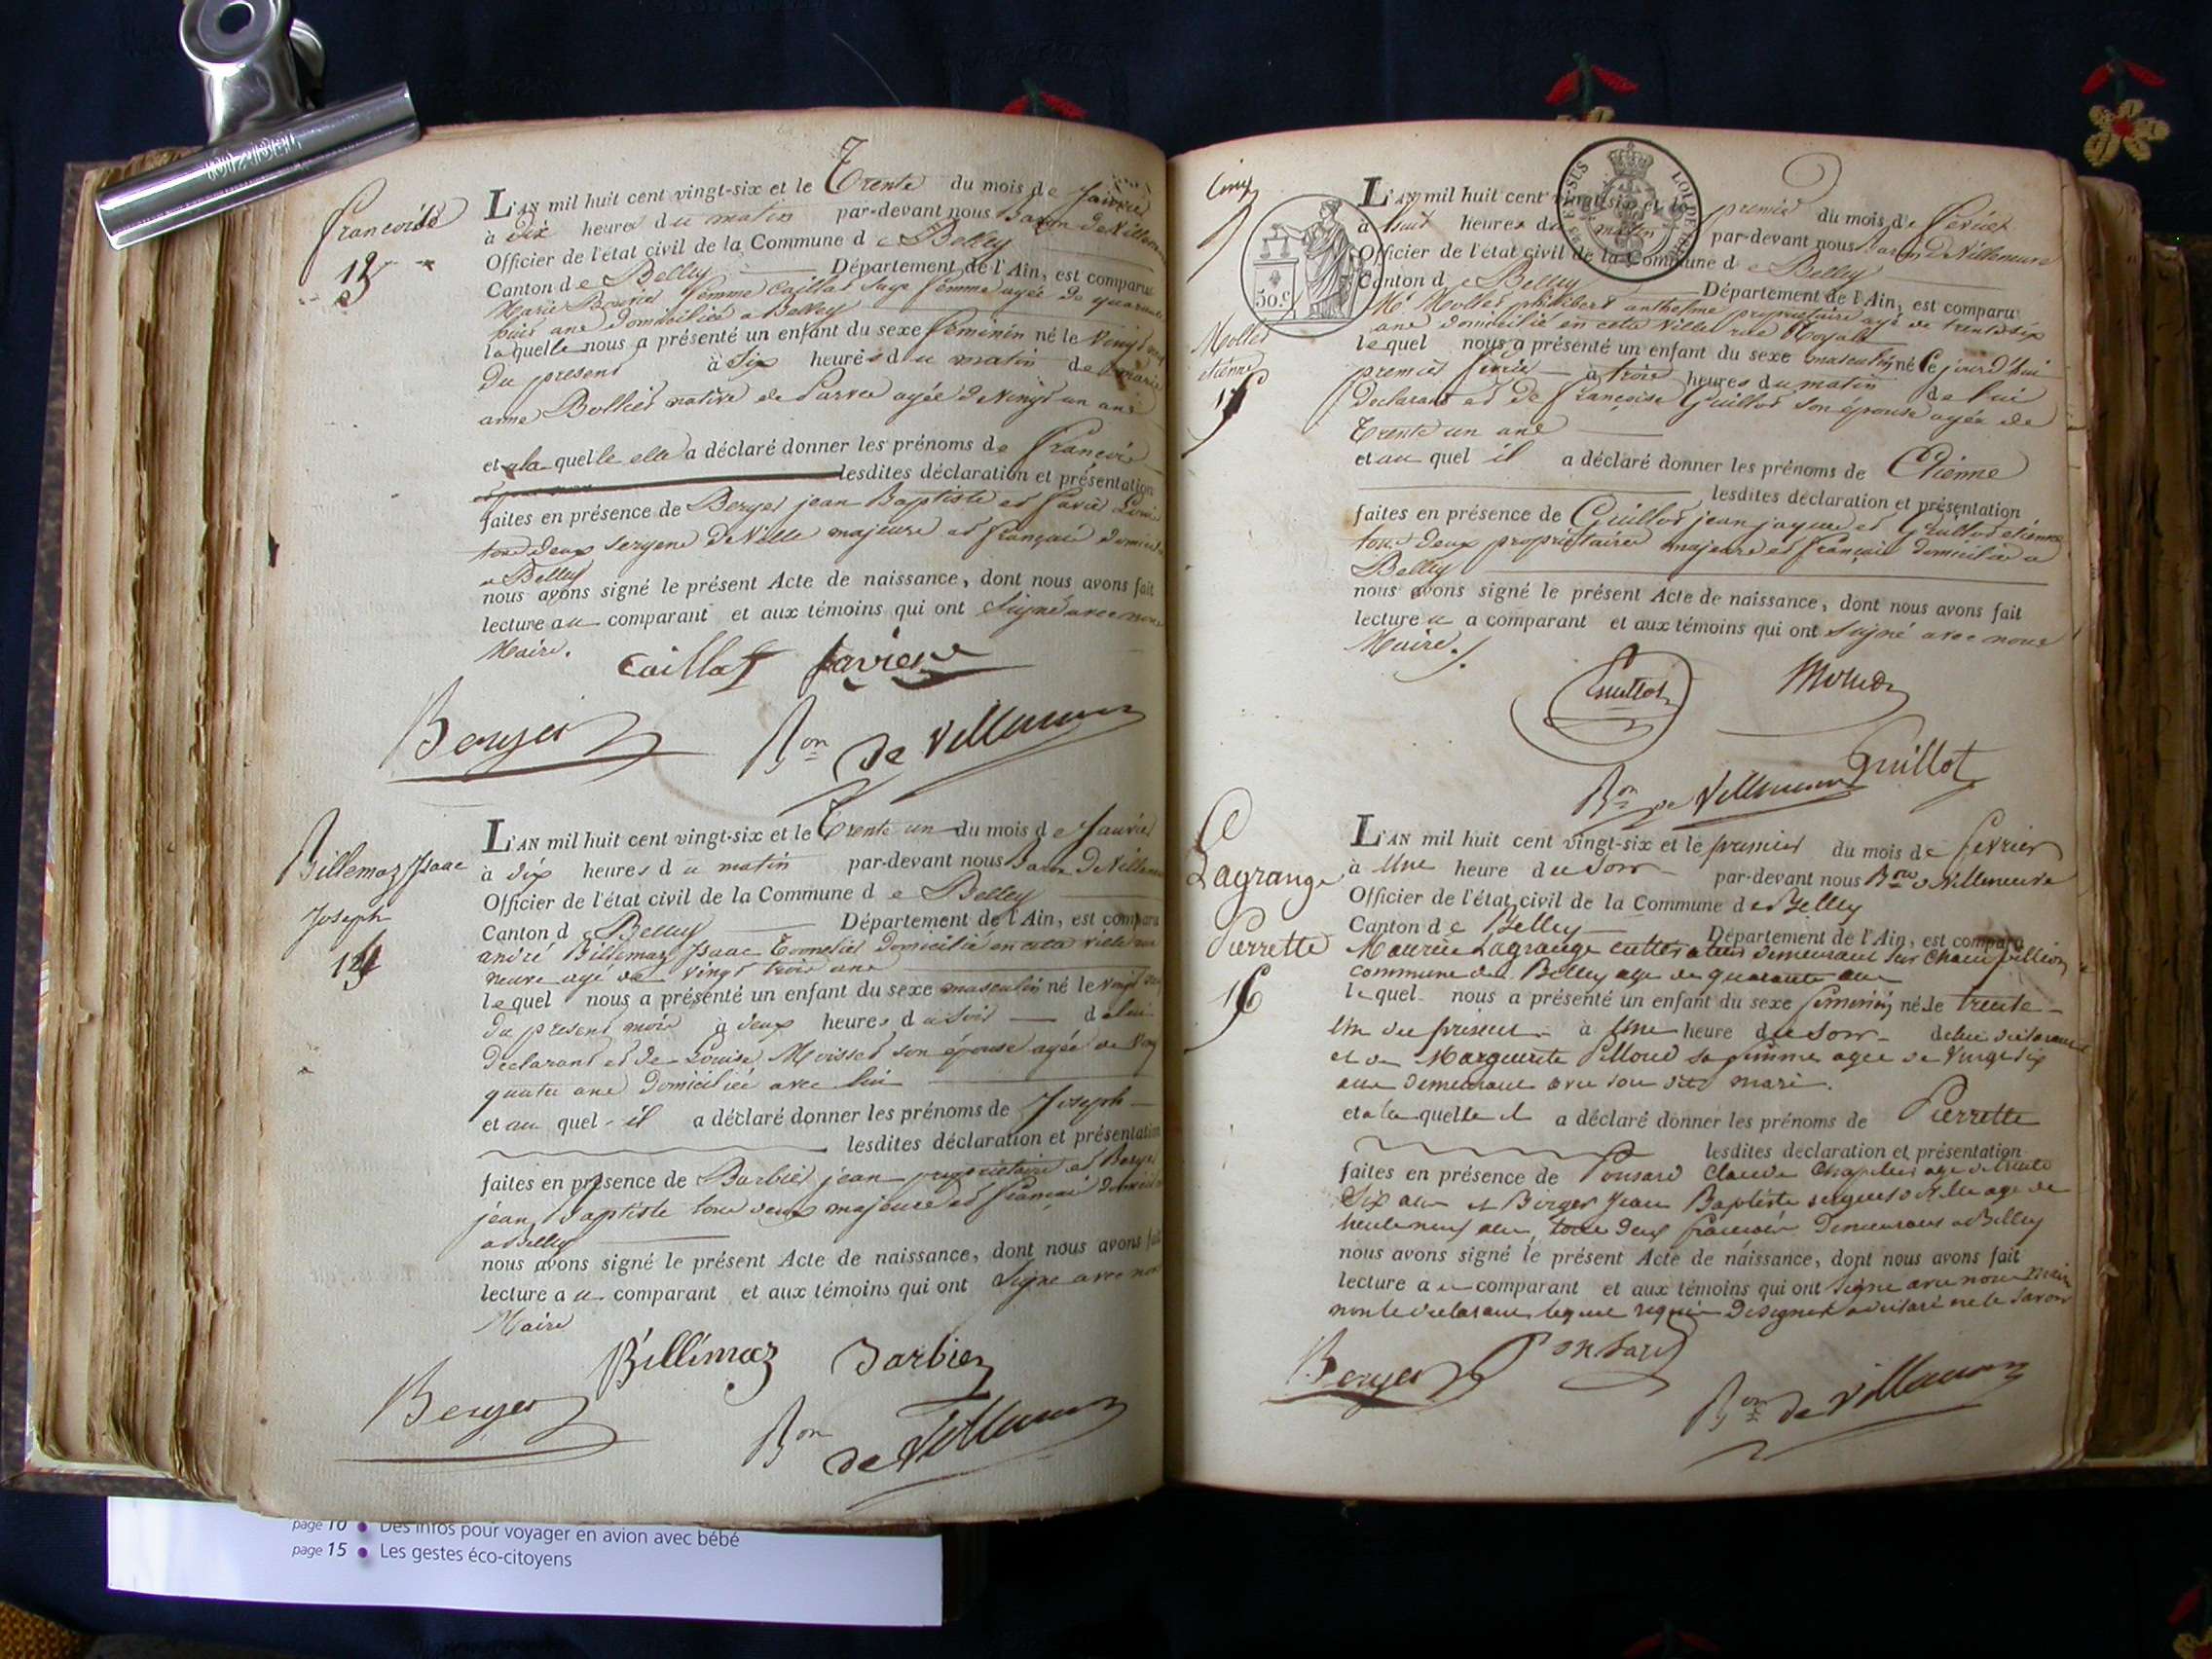 françoise
13
L'AN mil huit cent vingt-six et le Trente du mois de Janvier
à dix heures du matin par-devant nous Baron de Villeneuve
Officier de l'état civil de la Commune de Belley
Canton de Belley Département de l'Ain, est comparue
Marie femme Caillat Sage femme agée de quarante
huit ans domiciliée a Belley
laquelle nous a présenté un enfant du sexe feminin né le Vingt
du present à Six heures du matin de marie
anne Bollier native de Parves agée de Vingt un ans
et a la quelle elle a déclaré donner les prénoms de françoise
lesdites déclaration et présentation
faites en présence de Berger jean Baptiste et favier Louis
tous deux sergens de Ville majeurs et français domiciliés
a Belley
nous avons signé le présent Acte de naissance, dont nous avons fait
lecture au comparant et aux témoins qui ont Signé avec nous
Maire.
Caillat favier
Berger Bon de Villeneuve
Billemaz Isaac
Joseph
14
L'AN mil huit cent vingt-six et le Trente un du mois de Janvier
à dix heures du matin par-devant nous Baron de Villeneuve
Officier de l'état civil de la Commune de Belley
Canton de Belley Département de l'Ain, est comparu
andré Billemaz Isaac Tonnelier domicilié en cette ville rue
neuve agé de vingt trois ans
lequel nous a présenté un enfant du sexe masculin né le vingt
du present mois à deux heures du Soir de lui
declarant et de Louise Moisset son épouse agée de Vingt
quatre ans domiciliée avec lui
et au quel il a déclaré donner les prénoms de Joseph
lesdites déclaration et présentation
faites en présence de Barbier jean propriétaire et Berger
jean Baptiste tous deux majeurs et français domiciliés
a Belley
nous avons signé le présent Acte de naissance, dont nous avons fait
lecture au comparant et aux témoins qui ont Signé avec nous
Maire
Billimaz Barbier
Berger Bon de Villeneuve
Cinq
50 c.
LOI DE
EN SUS
Mollet
etienne
15
L'AN mil huit cent vingt-six et le premier du mois de fevrier
à huit heures du matin par-devant nous Baron de Villeneuve
Officier de l'état civil de la Commune de Belley
Canton de Belley Département de l'Ain, est comparu
Mr Mollet philibert anthelme propriétaire agé de trente six
ans domicilié en cette ville rue Royale
lequel nous a présenté un enfant du sexe masculin né Ce jourd'hui
premier fevrier à trois heures du matin de lui
declarant et de françoise Guillot son épouse agée de
Trente un ans
et au quel il a déclaré donner les prénoms de Etienne
lesdites déclaration et présentation
faites en présence de Guillot jean jaques et Guillot etienne
tous deux propriétaires majeurs et français domiciliés a
Belley
nous avons signé le présent Acte de naissance, dont nous avons fait
lecture au comparant et aux témoins qui ont Signé avec nous
Maire.
Guillot Mollet
Guillot
Bon de Villeneuve
Lagrange
Pierrette
16
L'AN mil huit cent vingt-six et le premier du mois de fevrier
à Une heure du Soir par-devant nous Bon de Villeneuve
Officier de l'état civil de la Commune de Belley
Canton de Belley Département de l'Ain, est comparu
Maurice Lagrange cultivateur demeurant sur
commune de Belley age de quarante ans
lequel nous a présenté un enfant du sexe feminin né le trente
Un du present à Une heure du Soir de lui declarant
et de Marguerite Pilloud sa femme agee de Vingt six
ans demeurant avec son dit mari.
et a la quelle il a déclaré donner les prénoms de Pierrette
lesdites déclaration et présentation
faites en présence de Ponsard Claude Chapelier age de trente
Six ans et Berger Jean Baptiste sergent de Ville age de
trente neuf ans, tous deux francais demeurans a Belley
nous avons signé le présent Acte de naissance, dont nous avons fait
lecture au comparant et aux témoins qui ont Signé avec nous Maire
non le declarant lequel requis de signer a declaré ne le savoir
Berger Ponsard
Bon de Villeneuve
page 10 • Des infos pour voyager en avion avec bébé
page 15 • Les gestes éco-citoyens